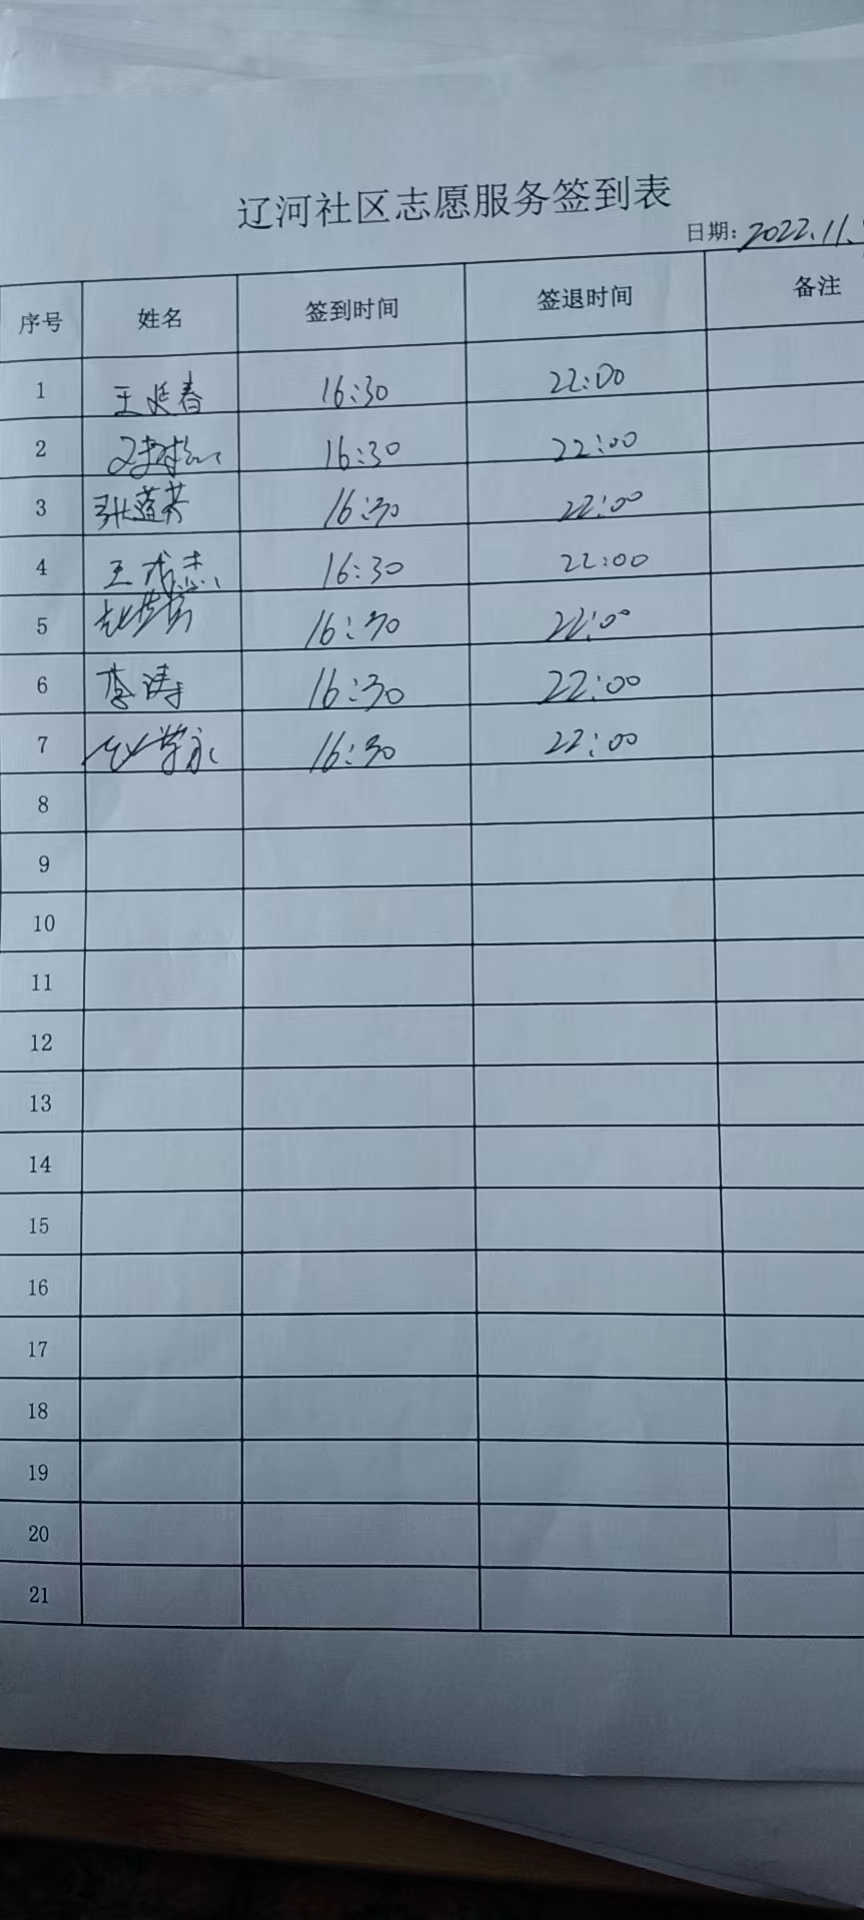 辽河社区志愿服务签到表
日期: 2022.11.
序号 姓名 签到时间 签退时间 备注
1 王延春 16:30 22:00
2 16:30 22:00
3 张蓝芬 16:30 22:00
4 王成志 16:30 22:00
5 16:30 22:00
6 李涛 16:30 22:00
7 16:30 22:00
8
9
10
11
12
13
14
15
16
17
18
19
20
21